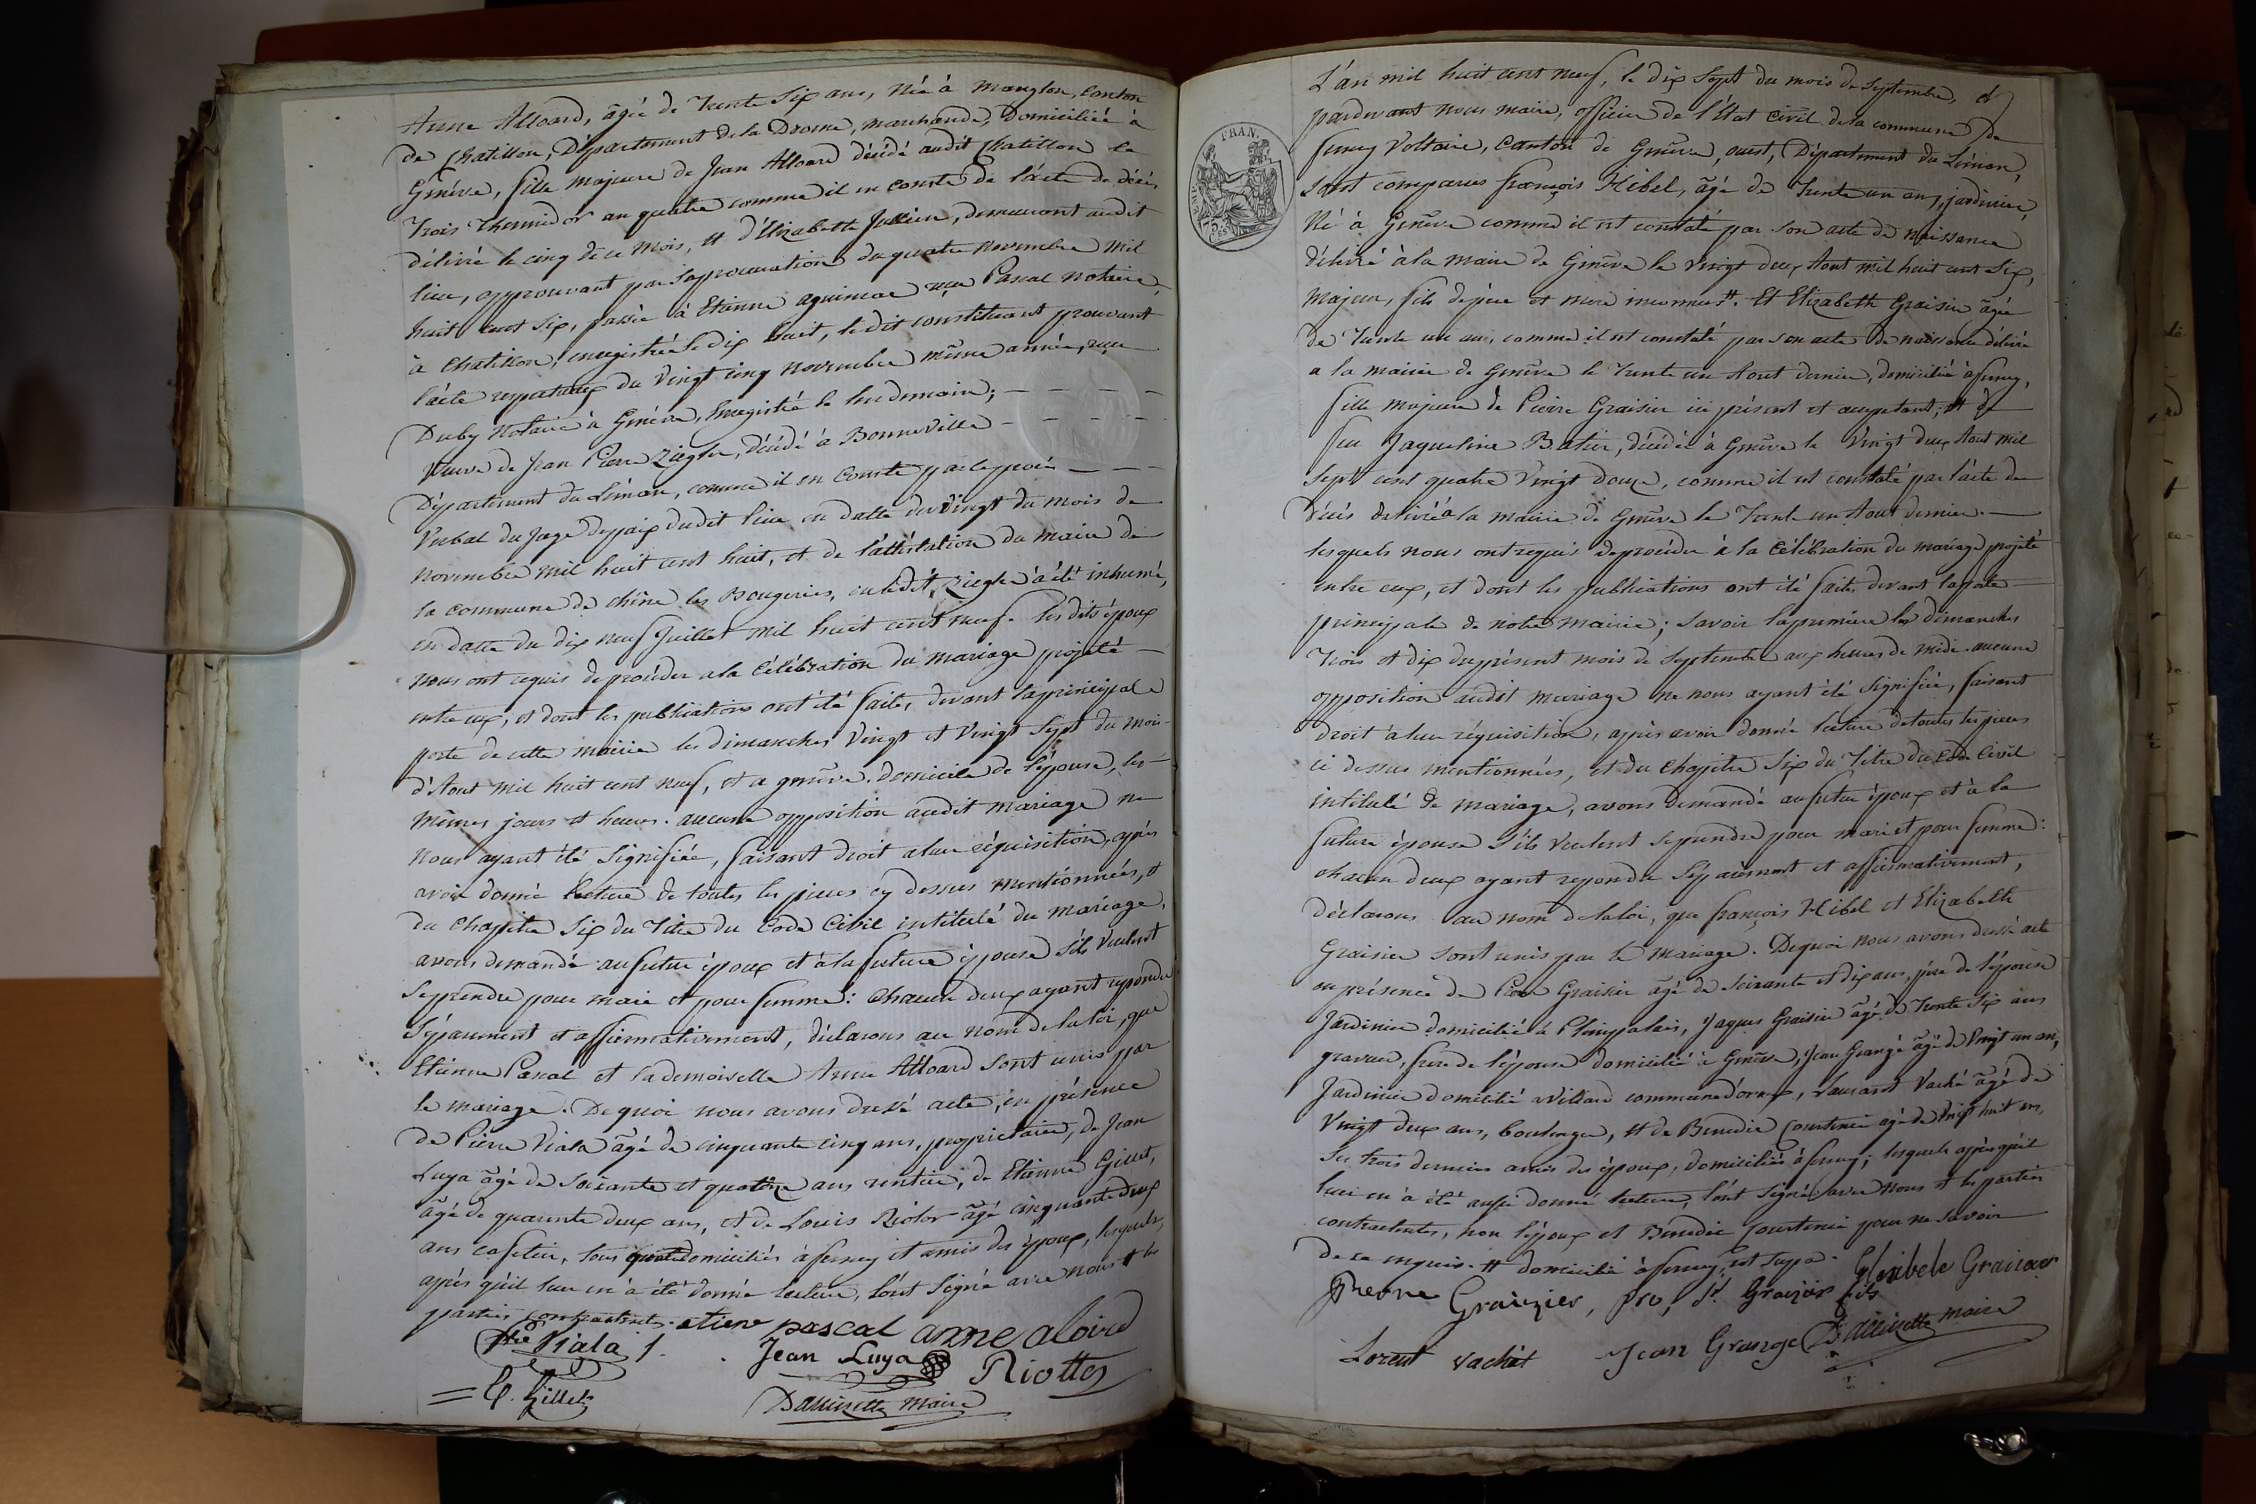 Anne Alloard, âgée de trente six ans, née à Menglon, canton
de Chatillon, Département de la Drome, marchande, Domiciliée à
Genève, fille majeure de Jean Alloard décédé audit Chatillon le
trois thermidor an quatre comme il en conste de l'acte de décès
délivré le cinq de ce mois, et d'Elizabeth Jullien, demeurant audit
lieu, approuvant par sa procuration du quatre novembre mil
huit cent six, passée à Etienne reçu Pascal notaire,
à Chatillon, enregistrée le dix huit, ledit constituant prouvant
l'acte respectueux du vingt cinq novembre même année, reçu
Duby Notaire à Genève, Enregistré le lendemain;
veuve de Jean Pierre Ziegler, décédé à Bonneville
Département du Léman, comme il en conste par le procès
Verbal du Juge de paix dudit lieu en datte du vingt du mois de
novembre mil huit cent huit, et de l'attestation du maire de
la commune de chêne les Bougeries, où ledit Ziegler a été inhumé,
en datte du dix neuf Juillet mil huit cent neuf. les dits époux
nous ont requis de procéder à la célébration du mariage projeté
entre eux, et dont les publications ont été faites devant la principale
porte de cette mairie les dimanches vingt et vingt sept du mois
d'Aout mil huit cent neuf, et a genève, domicile de l'épouse, les
mêmes jours et heures. aucune opposition audit mariage ne
nous ayant été signifiée, faisant droit à leur réquisition, après
avoir donné lecture de toutes les pieces cy dessus mentionnées, et
du chapitre six du titre du Code Civil intitulé du mariage,
avons demandé au futur époux et à la future épouse s'ils veulent
se prendre pour mari et pour femme: chacun deux ayant répondu
séparement et affirmativement, déclarons au nom de la loi, que
Etienne Pascal et la demoiselle Anne Alloard sont unis par
le mariage. De quoi nous avons dressé acte, en présence
de Pierre Viala âgé de cinquante cinq ans, propriétaire, de Jean
Luya âgé de soixante et quatorze ans rentier, de Etienne Gillet,
âgé de quarente deux ans, et de Louis Riotor âgé cinquante deux
ans cafetier, tous quatre domiciliés à ferney et amis des époux, lesquels
après qu'il leur en a été donné lecture, l'ont signé avec nous et les
parties contractantes. etiene pascal anne aloird
Pre Viala Jean Luya Riotto
E. Gillet Dallizette maire
L'an mil huit cent neuf, le dix sept du mois de septembre,
pardevant nous maire, officier de l'état civil de la commune de
ferney Voltaire, Canton de Genève, ouest, Département du Léman,
sont comparus françois Hibel, âgé de trente un ans, jardinier
né à Genève comme il est constaté par son acte de naissance
délivré à la mairie de Genève le vingt deux Aout mil huit cent six,
majeur, fils de père et mere inconnus #. Et Elizabeth Graisier âgée
de trente un ans, comme il est constaté par son acte de naissance délivré
a la mairie de Genève le trente un Aout dernier, domiciliée à ferney,
fille majeure de Pierre Graisier ici présent et acceptant; et de
feu Jaqueline Batier, décédée à Genève le vingt deux Aout mil
sept cent quatre vingt douze, comme il est constaté par l'acte de
décès delivré à la mairie de Genève le trente un Aout dernier.
lesquels nous ont requis de procéder à la célébration du mariage projeté
entre eux, et dont les publications ont été faites devant la porte
principale de notre mairie; savoir la première les dimanches
trois et dix du présent mois de septembre aux heures de midi. aucune
opposition audit mariage ne nous ayant été signifiée, faisant
droit à leur réquisition, après avoir donné lecture de toutes les pieces
ci dessus mentionnées, et du chapitre six du titre du code civil
intitulé de mariage, avons demandé au futur époux et à la
future épouse s'ils veulent se prendre pour mari et pour femme:
chacun deux ayant repondu séparement et affirmativement,
déclarons au nom de la loi, que françois Hibel et Elizabeth
Graisier sont unis par le mariage. De quoi nous avons dressé acte
en présence de Pierre Graisier âgé de soixante et dix ans, père de l'épouse
Jardinier domicilié à Plainpalais, Jaques Graisier âgé de trente six ans
graveur, frere de l'épouse domicilié à Genève, Jean Grange âgé de vingt un ans,
Jardinier domicilié à Villard commune d'ornex, Laurant Vaché âgé de
vingt deux ans, boulanger, et de Benedic Courtenié agé de vingt huit ans,
les trois derniers amis des époux, domiciliés à ferney; lesquels après qu'il
leur en a été aussi donné lecture, l'ont signé avec nous et les parties
contractantes, non l'époux et Benedic Courtenié pour ne savoir
de ce enquis. # domicilié à ferney,
Pierre Graizier, Graizier fils Elisabete Graizier
Lorent vachat Jean Grange Dallizette maire
FRAN.
75 CES